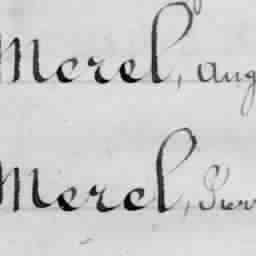 Merel, Aug
Merel,